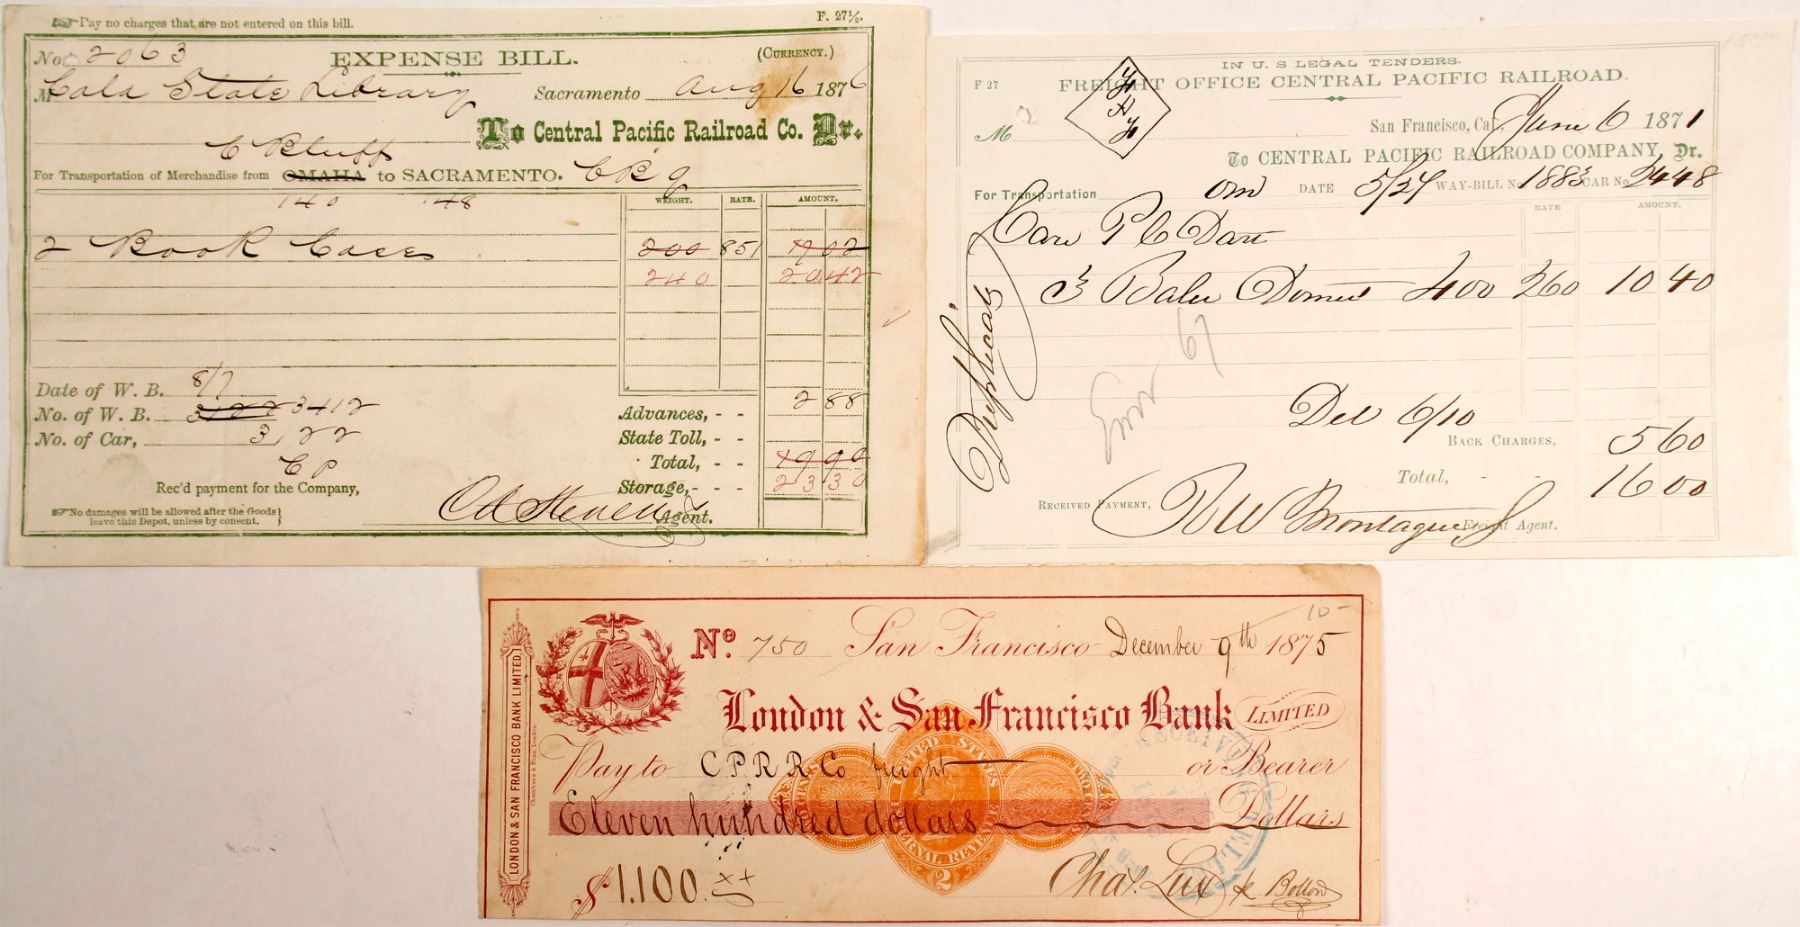 Pay no charges that are not entered on this bill.
F. 27½.
No. 2063
EXPENSE BILL.
(CURRENCY.)
M Cala State Library
Sacramento Aug 16 1876
To Central Pacific Railroad Co. Dr.
C Bluff
For Transportation of Merchandise from OMAHA to SACRAMENTO.
140 148
WEIGHT. RATE. AMOUNT.
2 Book Cases 200 851 17 02
240 20 42
Date of W. B. 8/7
No. of W. B. 3122 3412
No. of Car, 3122
CP
Advances, - - 2 88
State Toll, - -
Total, - - 19 90
Storage, - - - 23 30
Rec'd payment for the Company,
No damages will be allowed after the Goods
leave this Depot, unless by consent.
Agent.
IN U. S LEGAL TENDERS.
F 27
FREIGHT OFFICE CENTRAL PACIFIC RAILROAD.
M
San Francisco, Cal, June 6 1871
To CENTRAL PACIFIC RAILROAD COMPANY, Dr.
For Transportation Om DATE 5/27 WAY-BILL No. 1883 CAR No. 2448
RATE AMOUNT.
Care P C Dart
3 Bales Domes 400 260 10 40
Duplicate
67
Del 6/10
BACK CHARGES, 5 60
Total, - - 16 00
RECEIVED PAYMENT,
R W Montague
Freight Agent.
10-
No. 750 San Francisco December 9th 1875
London & San Francisco Bank LIMITED
Pay to C.P.R.R. Co freight or Bearer
Eleven hundred dollars Dollars
$1,100.
Chas. Lux
LONDON & SAN FRANCISCO BANK LIMITED
UNITED STATES
INTERNAL REVENUE
2